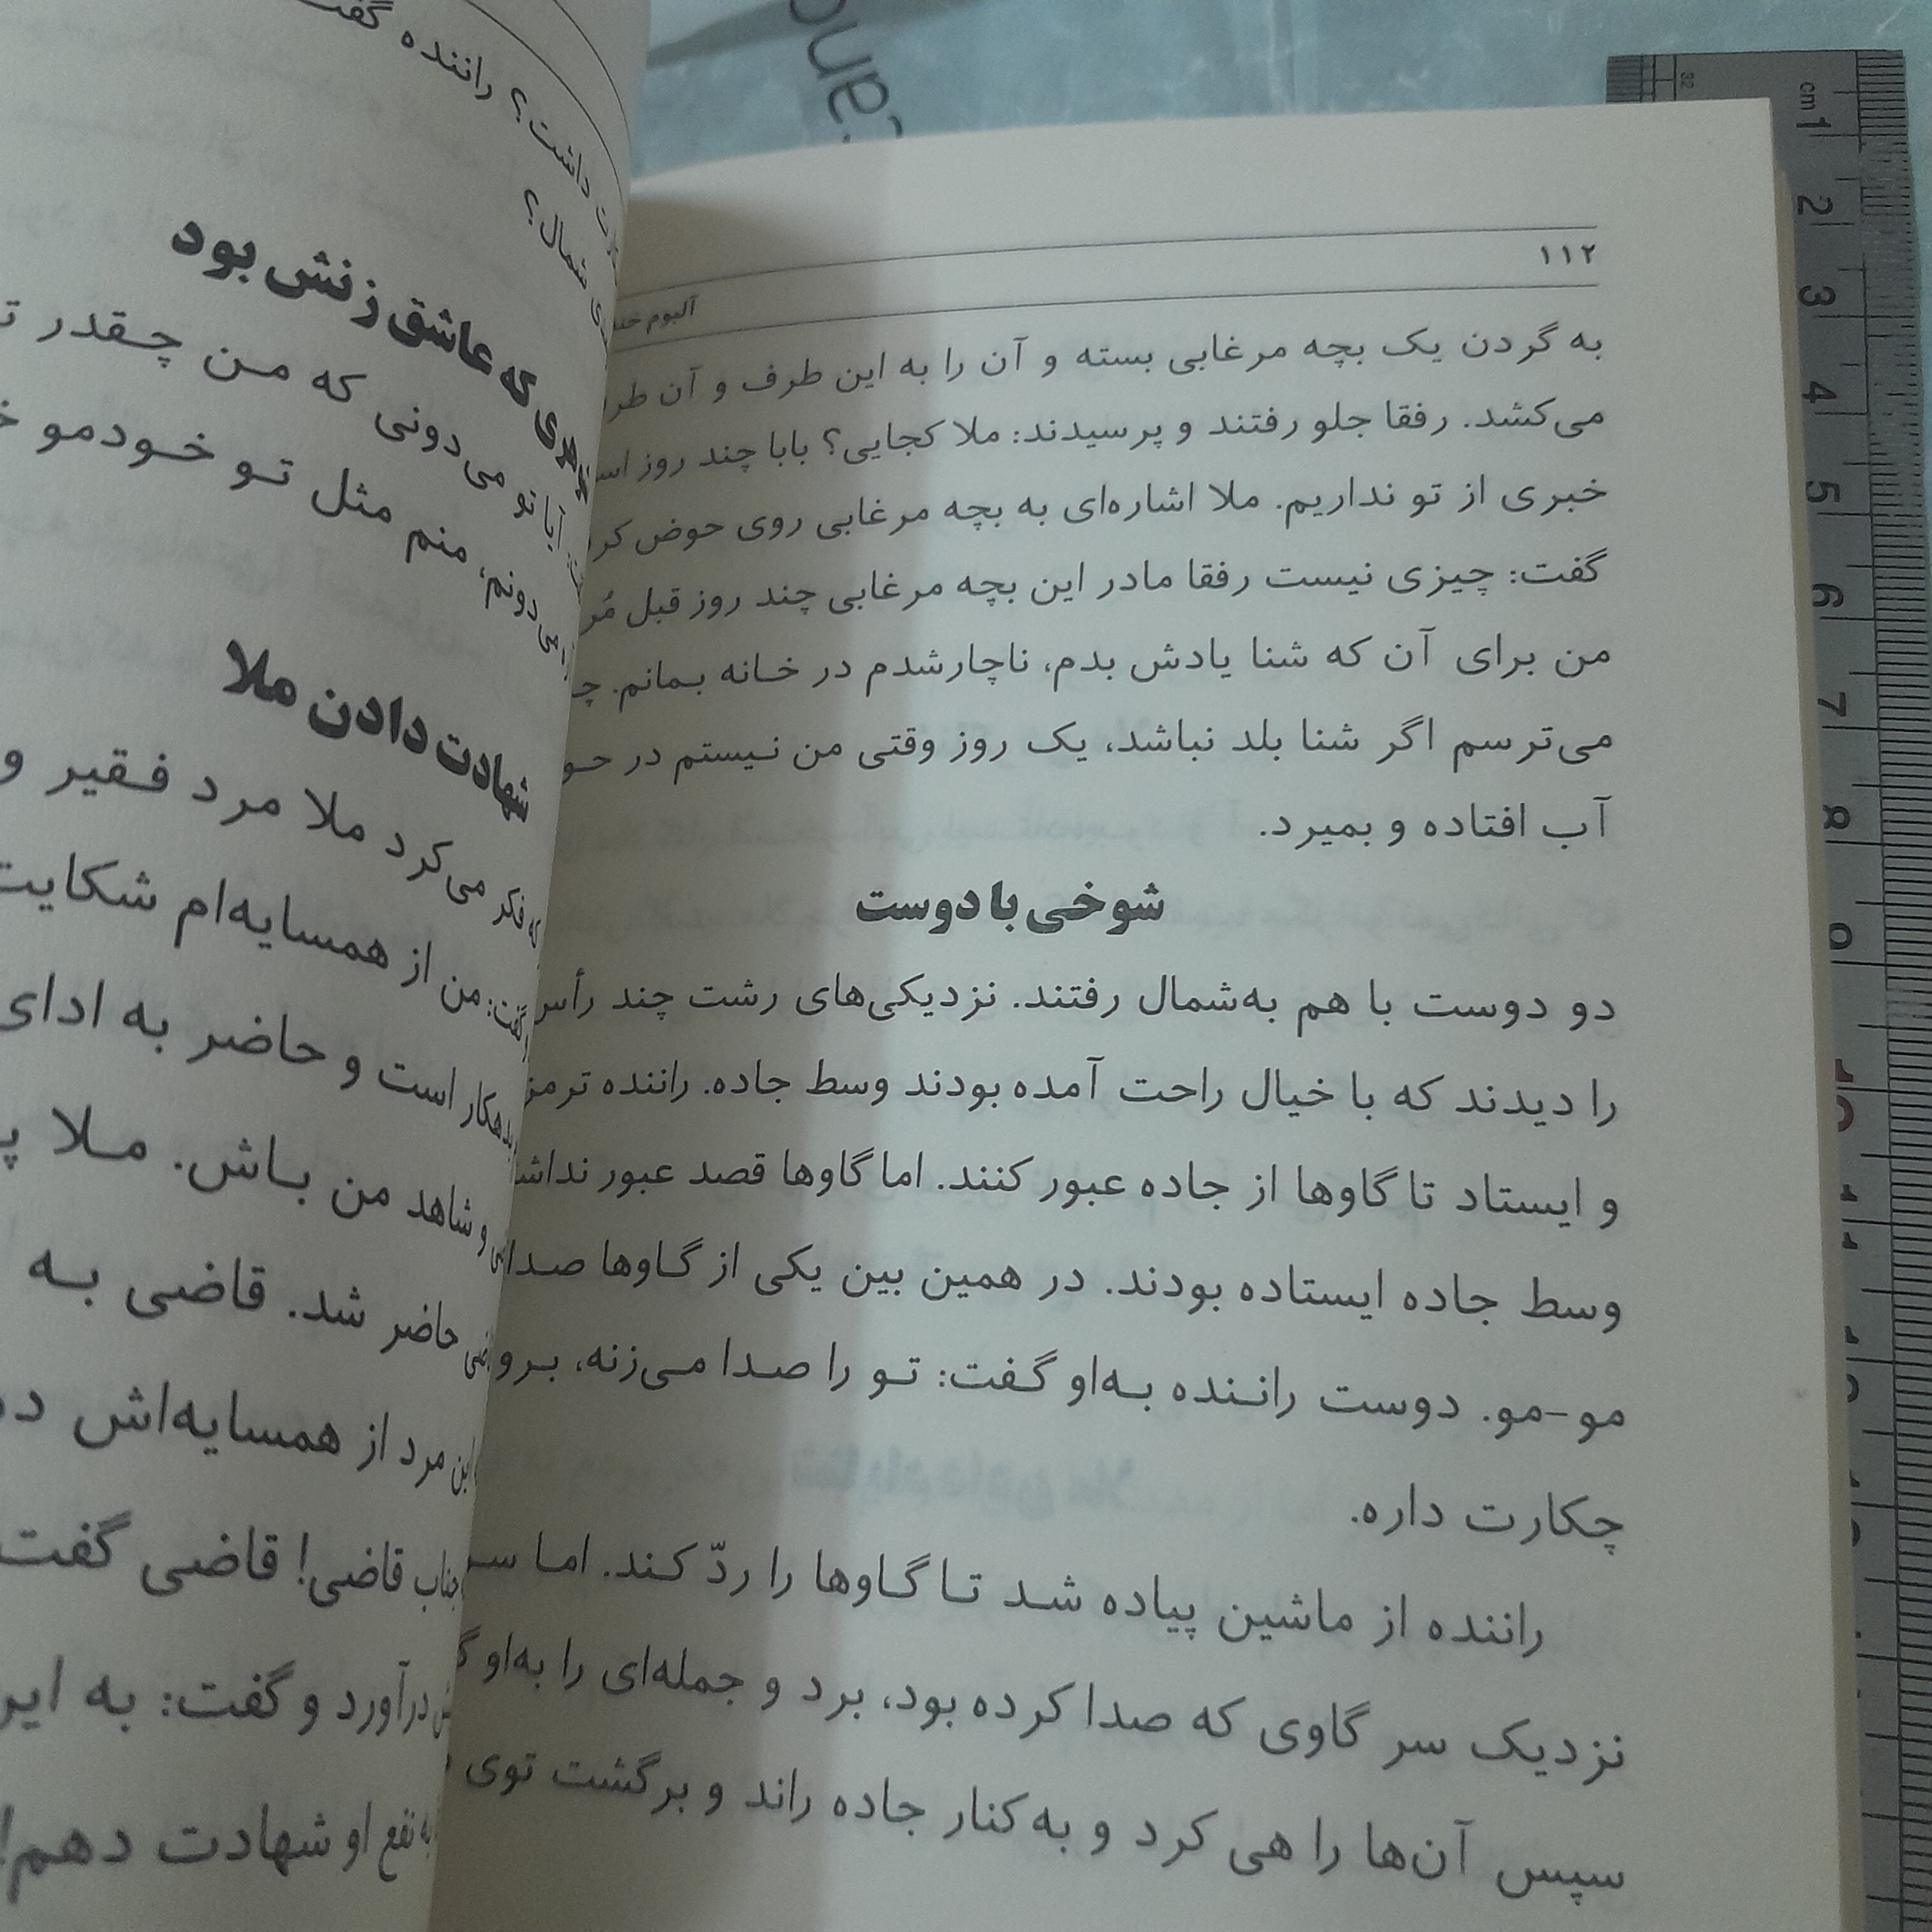 ۱۱۲
آلبوم
به گردن یک بچه مرغابی بسته و آن را به این طرف و آن
می‌کشد. رفقا جلو رفتند و پرسیدند: ملا کجایی؟ بابا چند روز
خبری از تو نداریم. ملا اشاره‌ای به بچه مرغابی روی حوض
گفت: چیزی نیست رفقا مادر این بچه مرغابی چند روز قبل
من برای آن که شنا یادش بدم، ناچارشدم در خانه بمانم.
می‌ترسم اگر شنا بلد نباشد، یک روز وقتی من نیستم در
آب افتاده و بمیرد.
شوخی با دوست
دو دوست با هم به‌شمال رفتند. نزدیکی‌های رشت چند رأس
را دیدند که با خیال راحت آمده بودند وسط جاده. راننده ترمز
و ایستاد تا گاوها از جاده عبور کنند. اما گاوها قصد عبور
وسط جاده ایستاده بودند. در همین بین یکی از گاوها
مو-مو. دوست راننده به‌او گفت: تو را صدا می‌زنه، برو
چکارت داره.
راننده از ماشین پیاده شد تا گاوها را ردّ کند. اما
نزدیک سر گاوی که صدا کرده بود، برد و جمله‌ای را به‌او
سپس آن‌ها را هی کرد و به‌کنار جاده راند و برگشت توی
داشت؟ راننده
شمال؟
که عاشق زنش بود
آیا تو می‌دونی که من چقدر
می‌دونم، منم مثل تو خودمو
شهادت دادن ملا
که فکر می‌کرد ملا مرد فقیر و
گفت: من از همسایه‌ام
بدهکار است و حاضر به ادای
و شاهد من باش. ملا
حاضر شد. قاضی به
این مرد از همسایه‌اش
جناب قاضی! قاضی گفت
درآورد و گفت: به
به نفع او شهادت دهم!